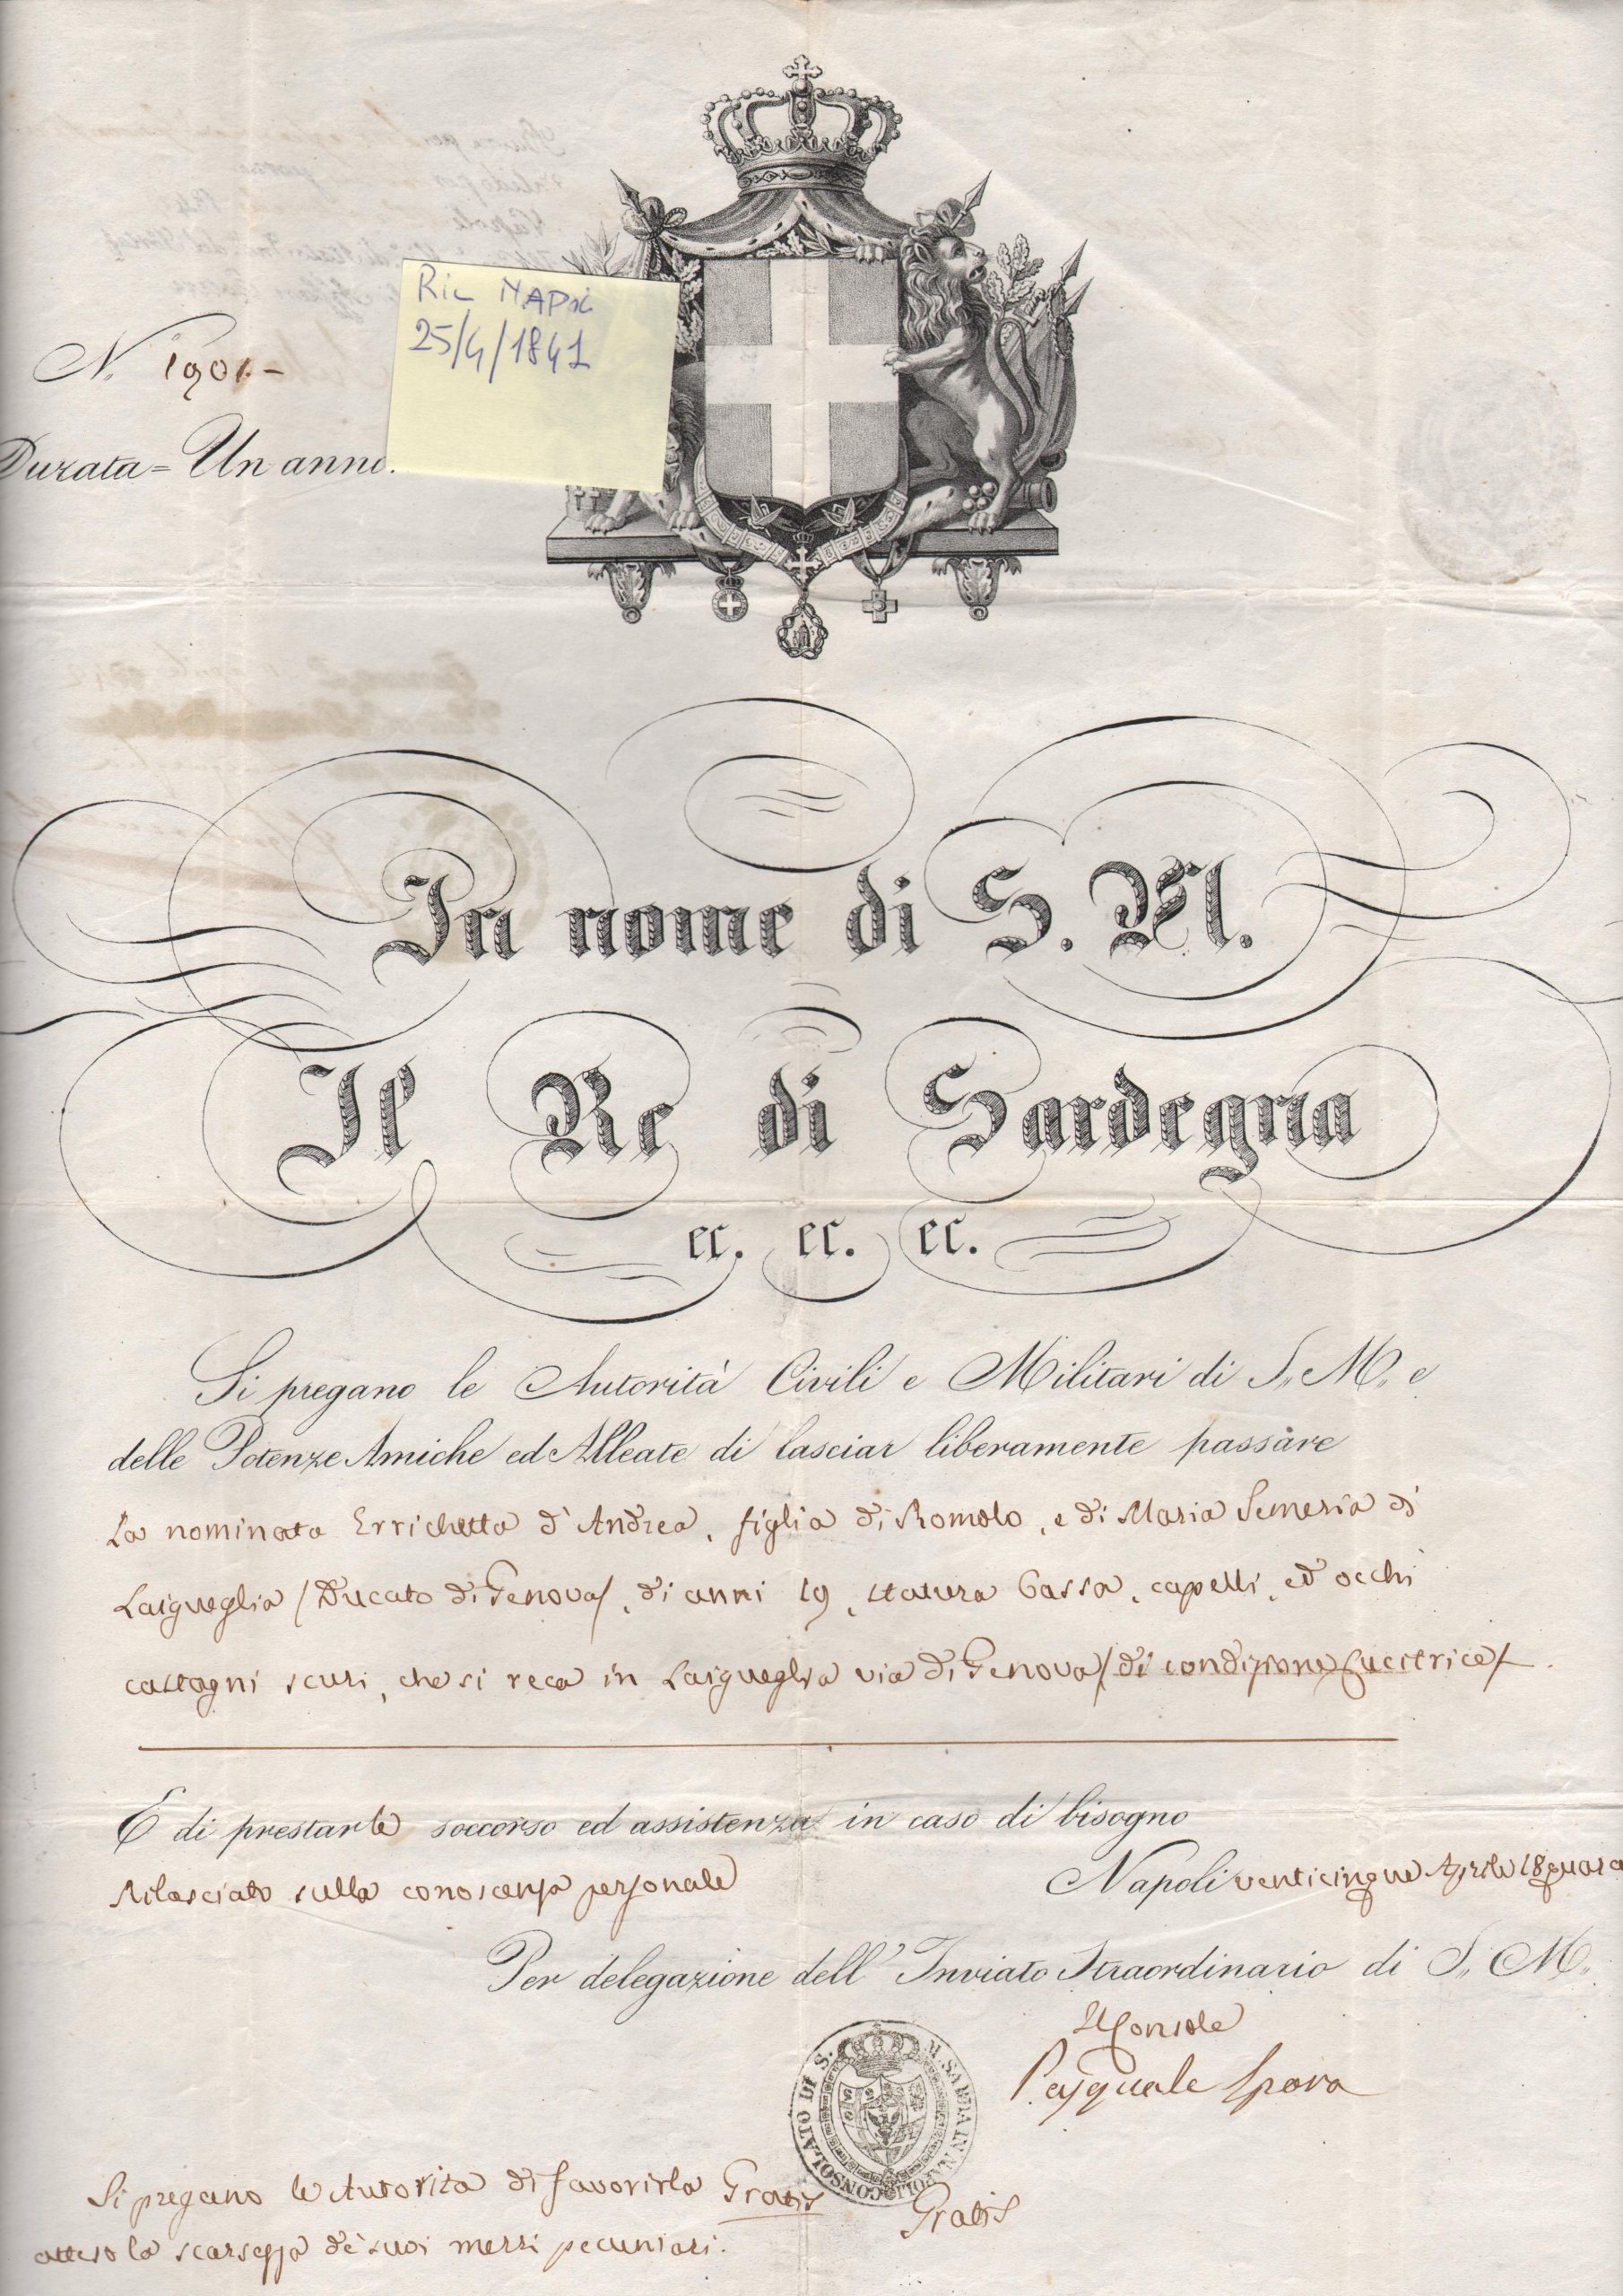 Ric NAPOL
25/4/1841
N. 1901.-
Durata = Un anno.
In nome di S. M.
Il Re di Sardegna
ec. ec. ec.
Si pregano le Autorità Civili e Militari di S,, M,, e
delle Potenze Amiche ed Alleate di lasciar liberamente passare
La nominata Errichetta d'Andrea, figlia di Romolo, e di Maria Semeria di
Laigueglia /Ducato di Genova/, di anni 19, statura bassa, capelli, ed occhi
castagni scuri, che si reca in Laigueglia via di Genova /di condizione Cucitrice/.
E di prestarle soccorso ed assistenza in caso di bisogno
Rilasciato sulla conoscenza personale
Napoli venticinque Aprile 18quara
Per delegazione dell' Inviato Straordinario di S,, M,,
Il Console
Pasquale Spora
CONSOLATO DI S. M. SARDA IN NAPOLI
Gratis
Si pregano le Autorità di favorirla Gratis
atteso la scarsezza de' suoi mezzi pecuniari.